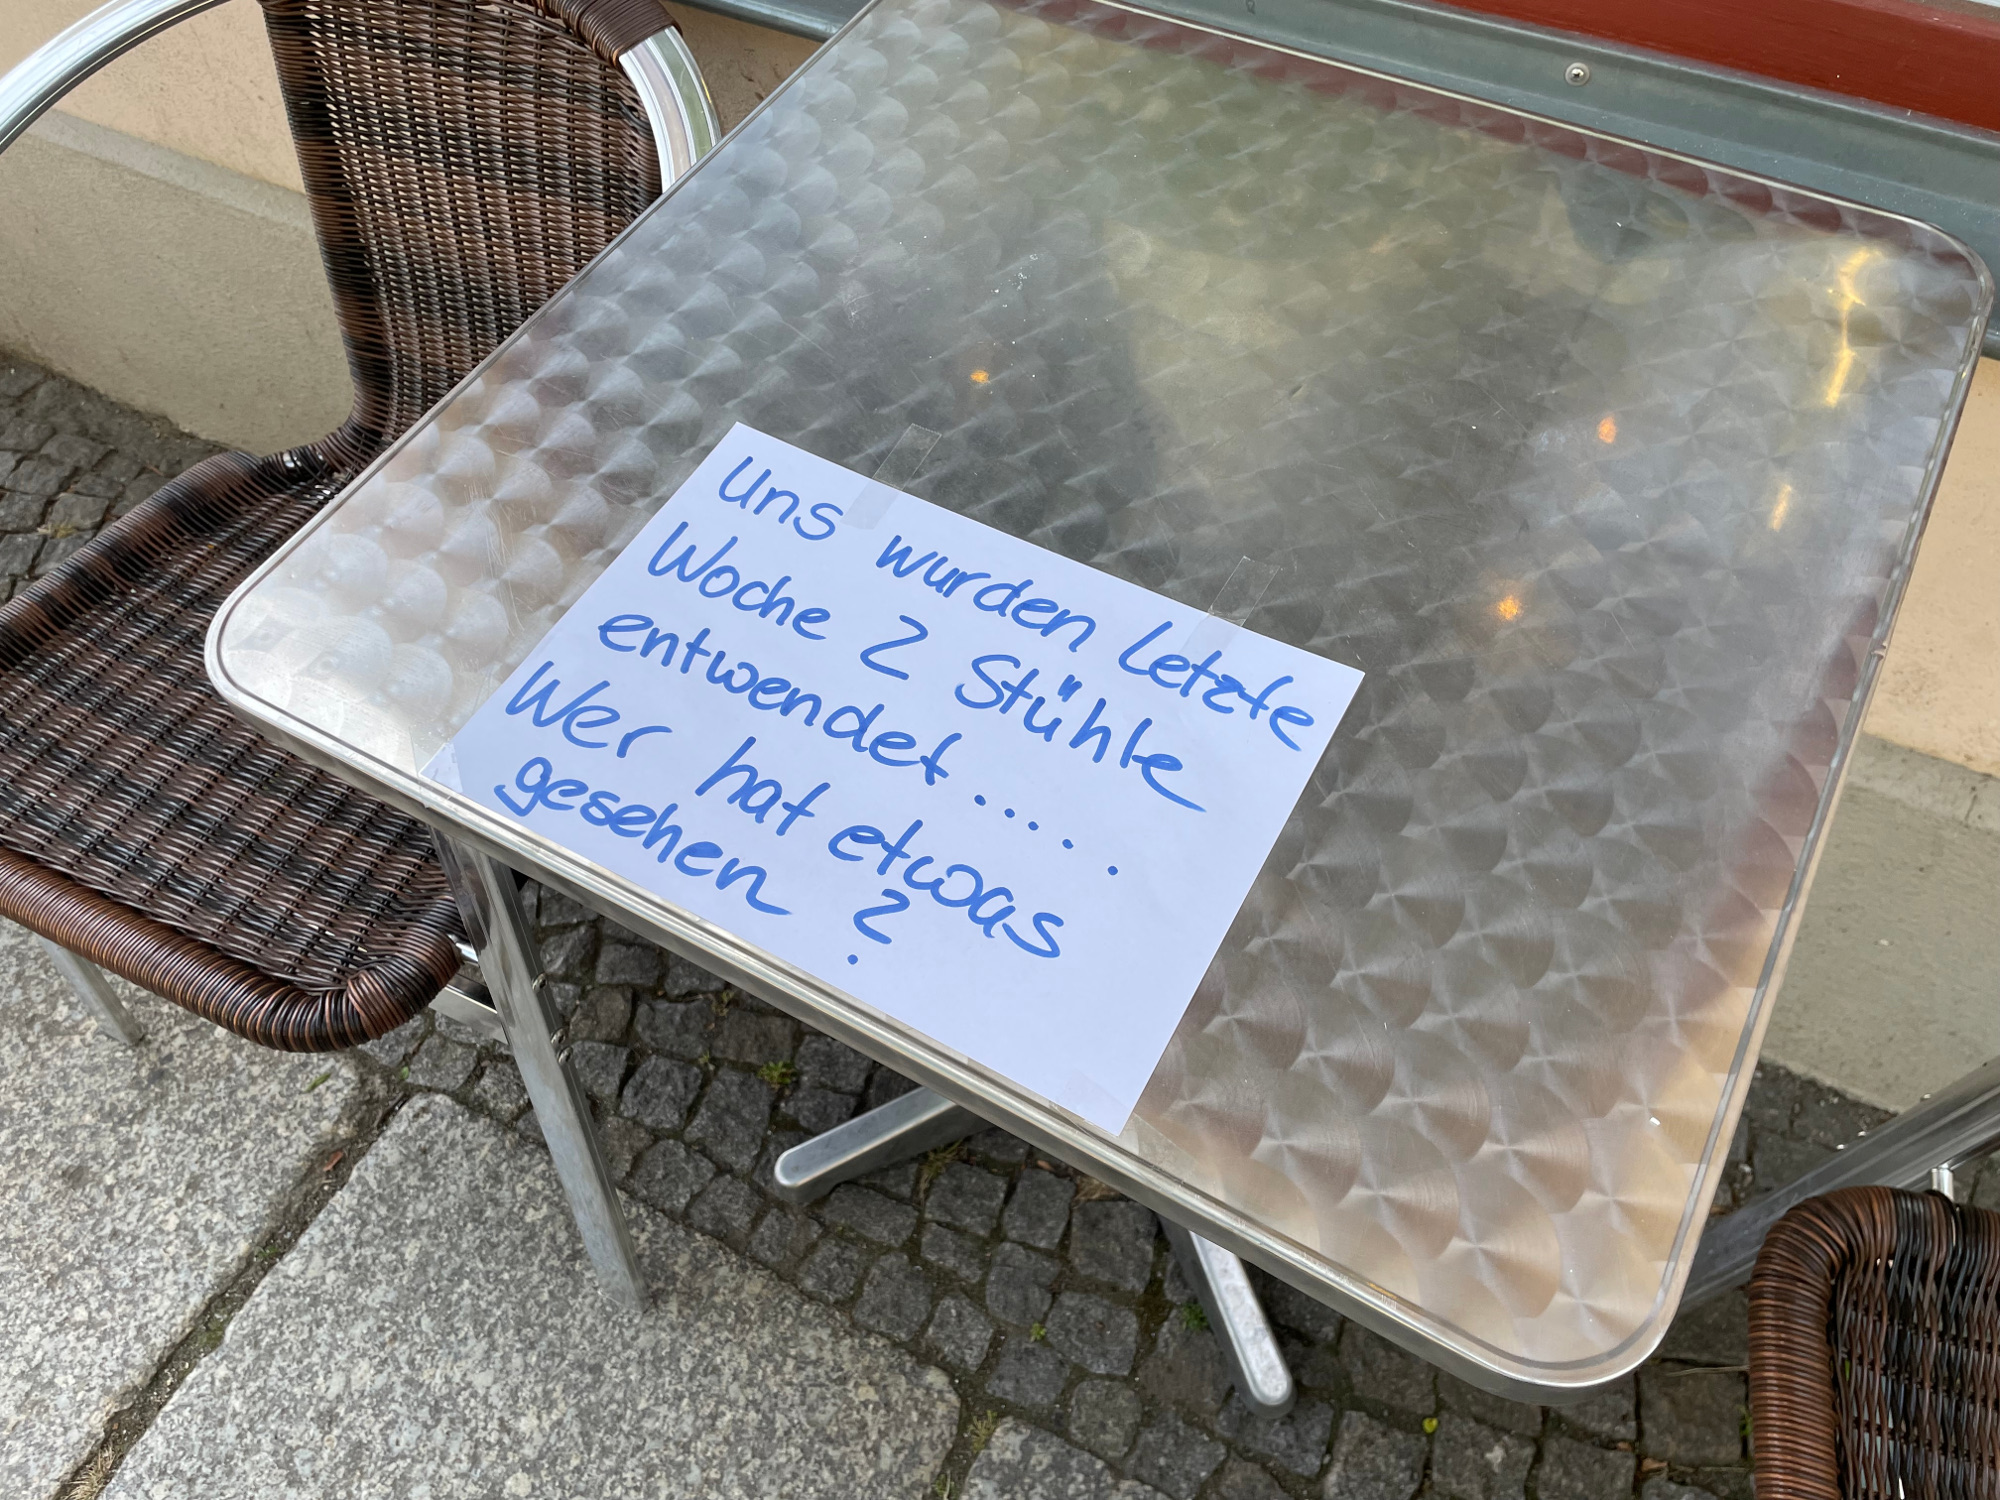 Uns wurden letzte
Woche 2 Stühle
entwendet.....
Wer hat etwas
gesehen ?